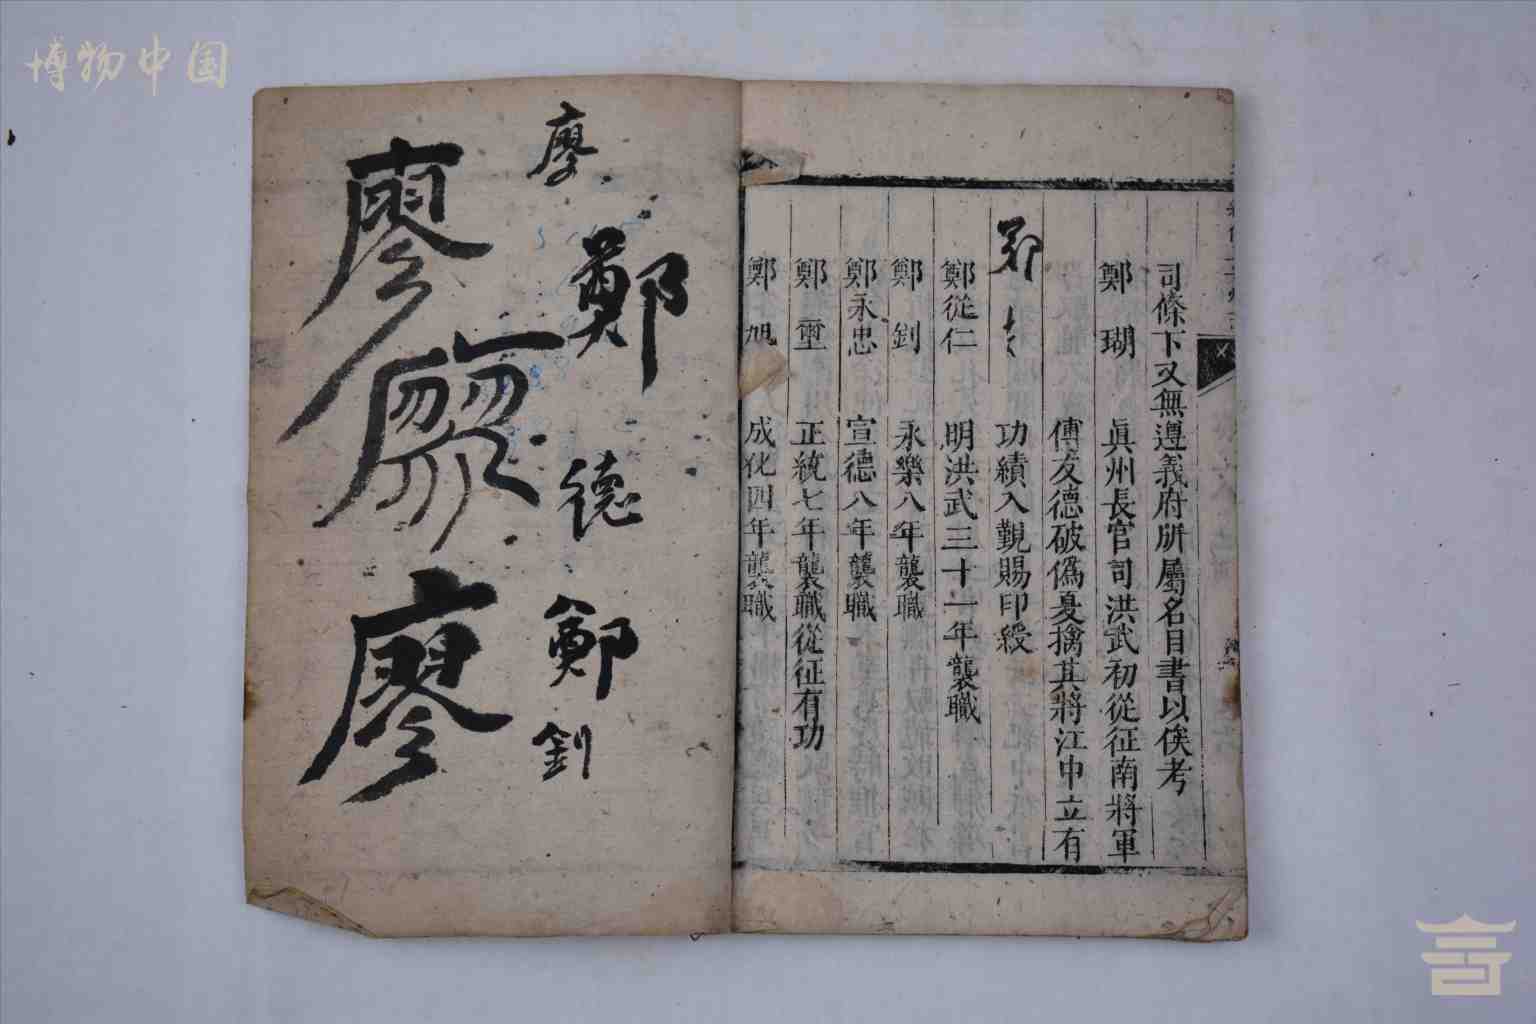 博物中国
司條下又無遵義府所屬名目書以俟考
鄭瑚 眞州長官司洪武初從征南將軍
傅友德破僞夏擒其將江中立有
功績入覲賜印綬
鄭
鄭從仁 明洪武三十一年襲職
鄭釗 永樂八年襲職
鄭永忠 宣德八年襲職
鄭壐 正統七年襲職從征有功
鄭旭 成化四年襲職
廖
鄭
德
鄭
釗
廖
廖
廖